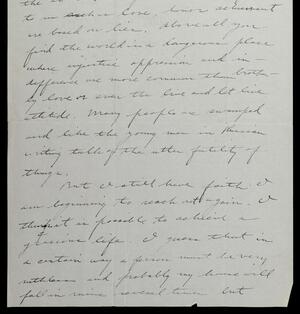 to
are based on lies. Above all you
find the world is a dangerous place
where injustice oppression and in-
difference are more common than brother-
ly love or even the live and let live
attitude. Many people are swamped
and like the young men in Russian
writing talk of the utter futility of
things.
But I still have faith. I
am beginning to reach out again. I
think it is possible to achieve a
glorious life. I guess that in
a certain way a person must be very
ruthless and probably my house will
fall in ruins several times but